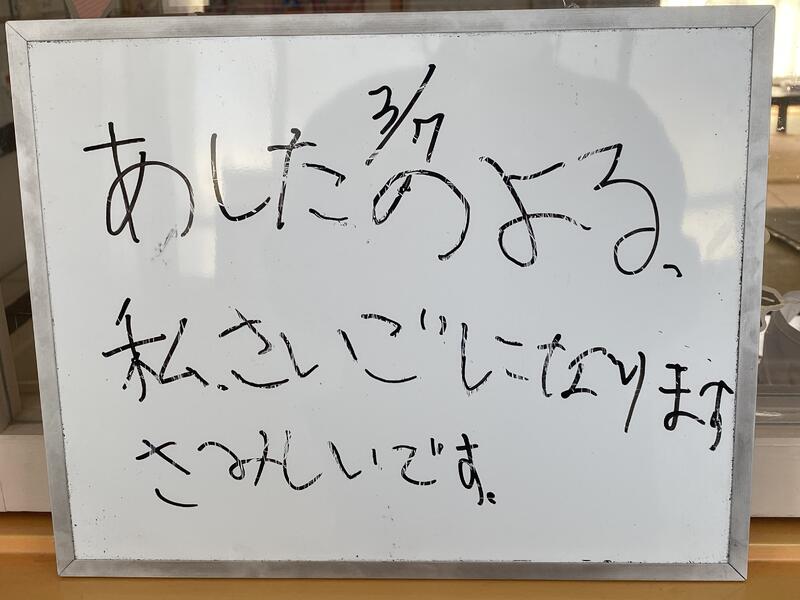 3/7
あしたのよる、
私、さいごになります
さみしいです。